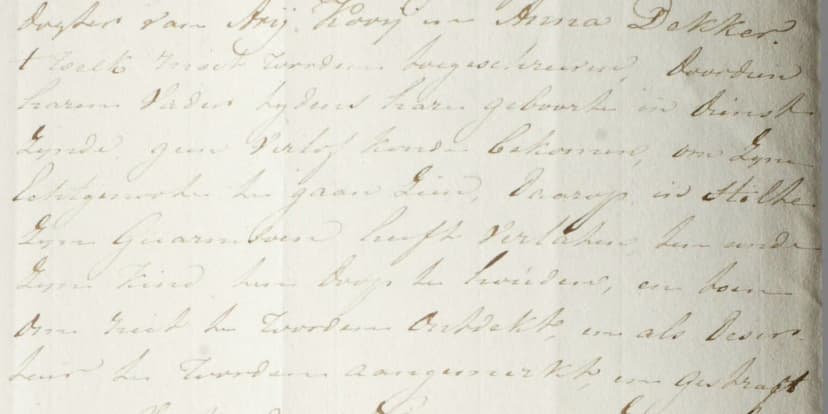 dogter van Arij Kooij en Anna Dekker.
't welk moet worden toegeschreven, doordien
haren Vader tijdens hare geboorte in dienst
zijnde, geen verlof konde bekomen, om zijne
Echtgenoote te gaan zien, daarop in stilte
zijn Guarnisoen heeft verlaten, ten einde
zijn kind ten doop te houden, en toen
om niet te worden ontdekt, en als deser-
teur te worden aangemerkt, en gestraft